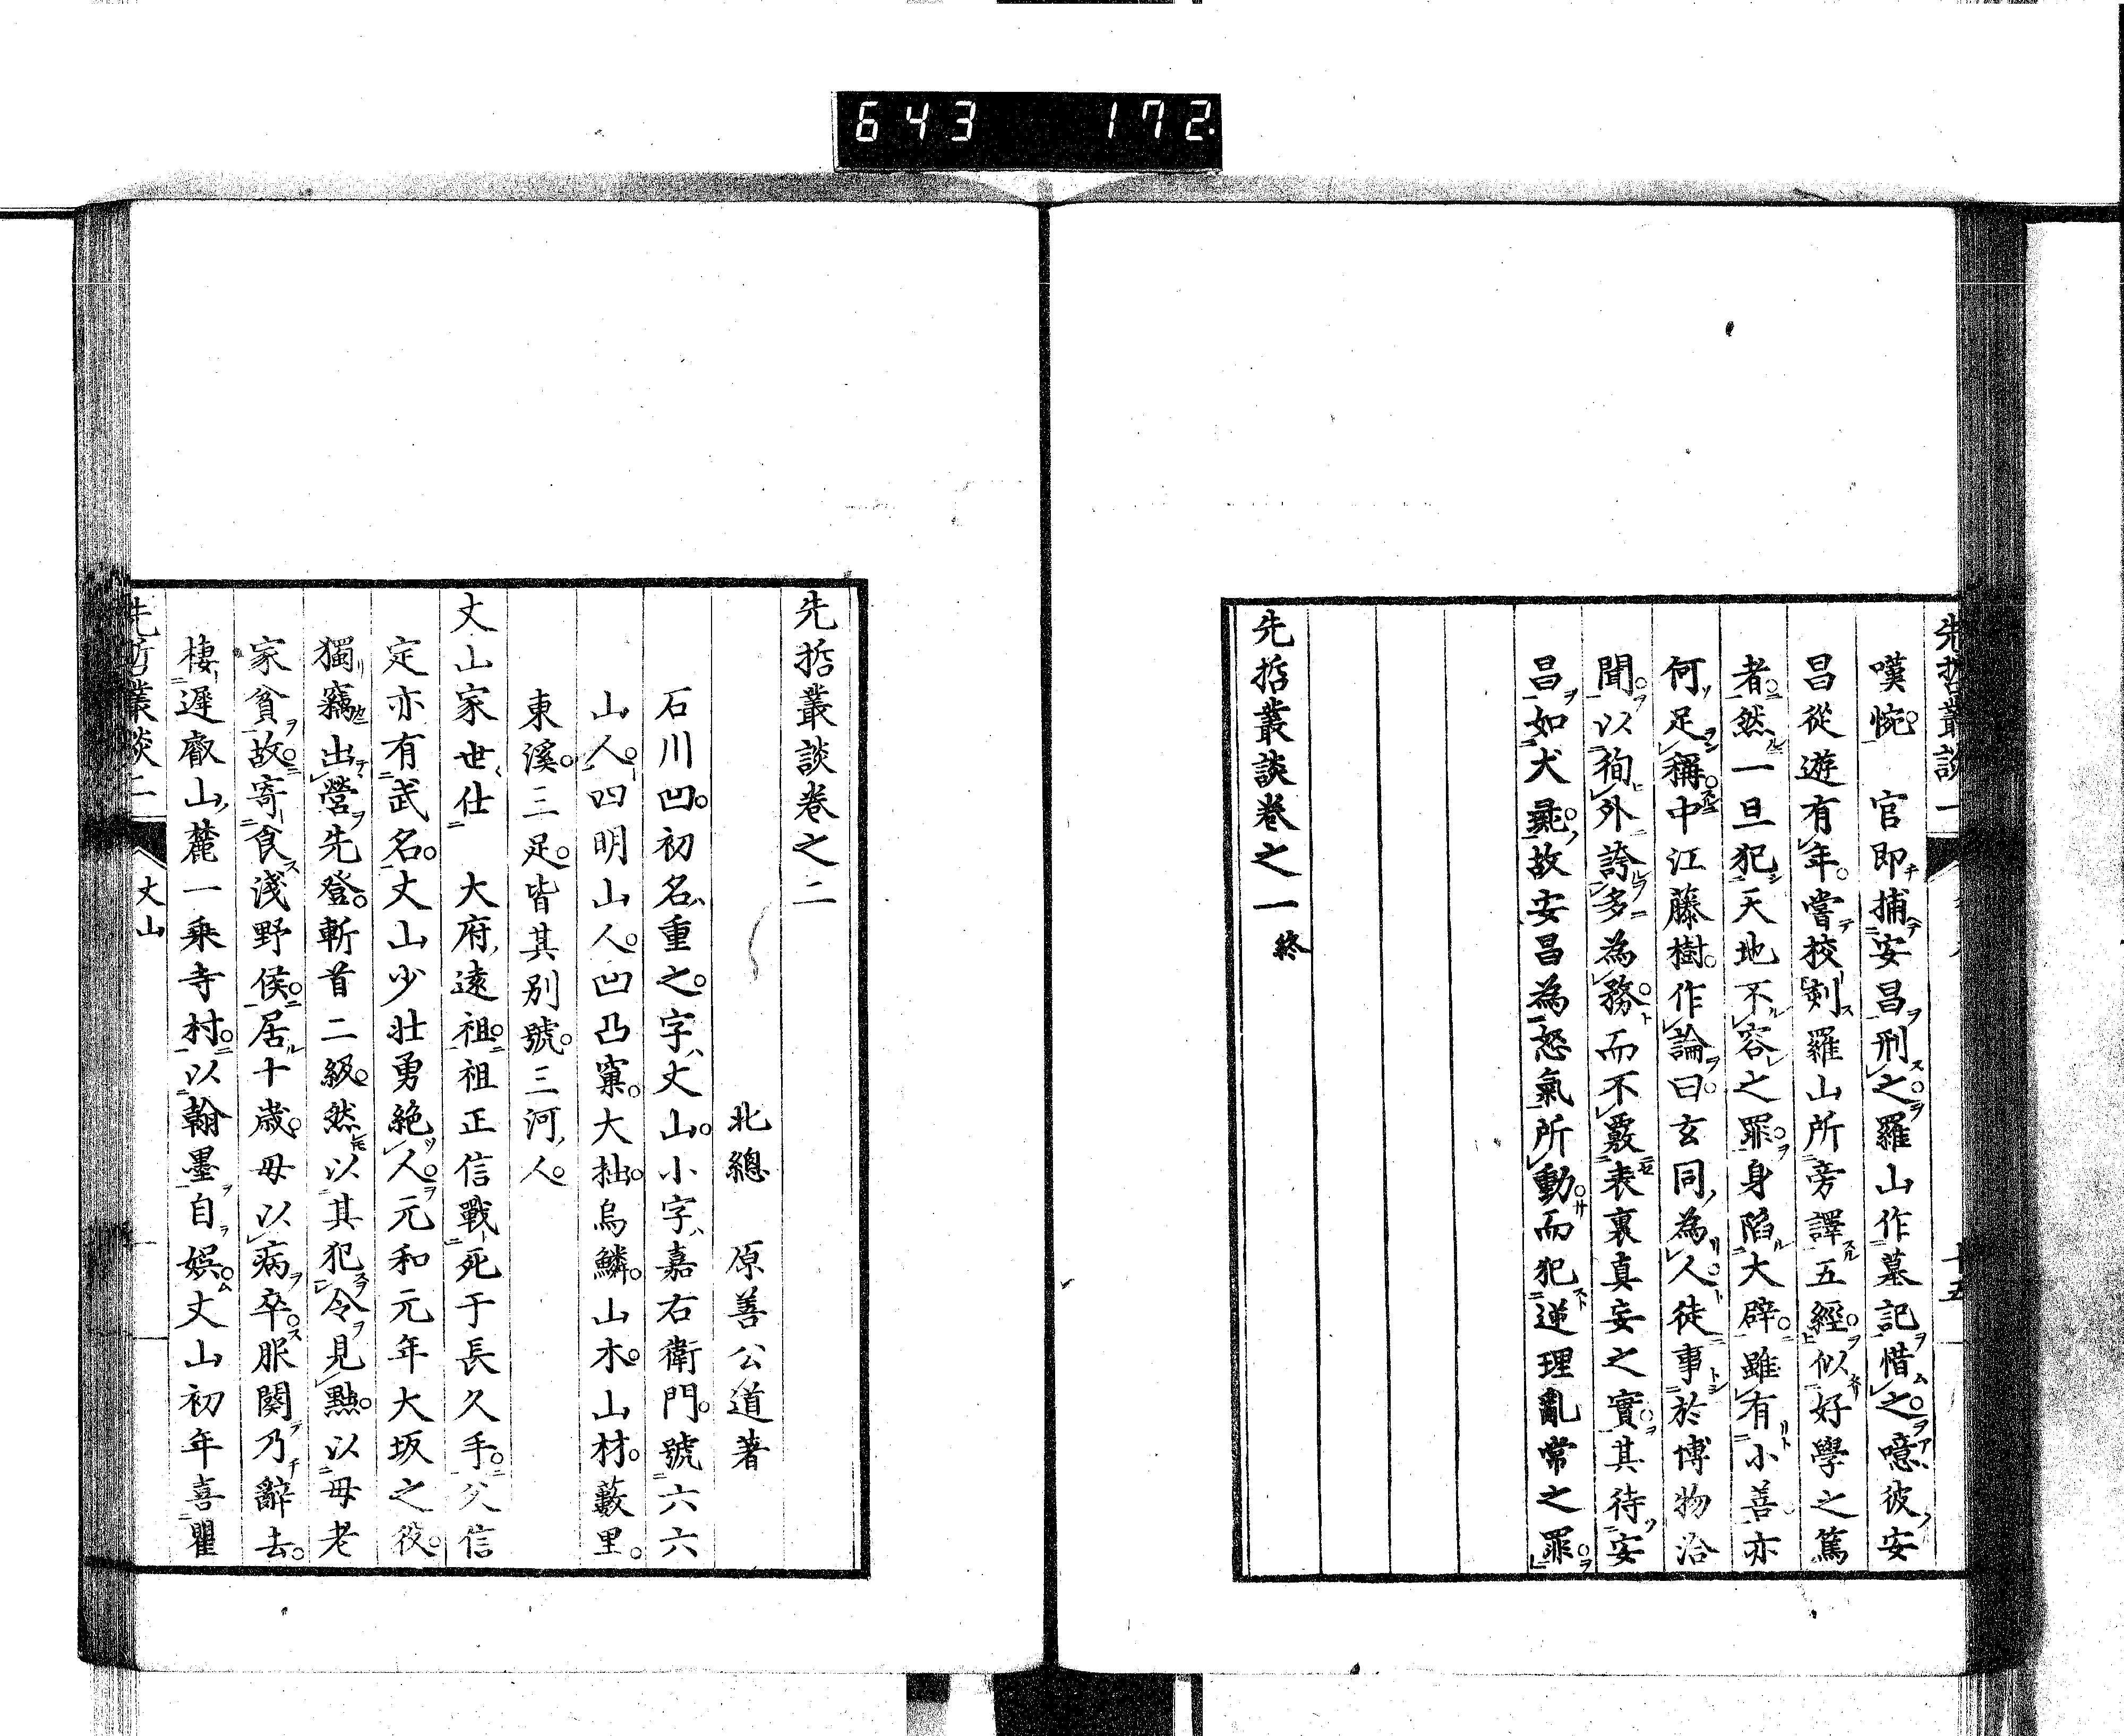 643 172.
先哲叢談一
十五
嘆惋官即捕安昌刑之羅山作墓記惜之噫彼安
昌從遊有年嘗校刻羅山所旁譯五經似好學之篤
者然一旦犯天地不容之罪身陷大辟雖有小善亦
何足稱中江藤樹作論曰玄同為人徒事於博物洽
聞以徇外誇多為務而不覈表裏真妄之實其待安
昌如犬彘故安昌為怒氣所動而犯逆理亂常之罪
先哲叢談卷之一終
先哲叢談卷之二
北總 原善公道著
石川凹初名重之字丈山小字嘉右衛門號六六
山人四明山人凹凸窠大拙烏鱗山木山材藪里
東溪三足皆其別號三河人
丈山家世仕 大府遠祖祖正信戰死于長久手父信
定亦有武名丈山少壯勇絶人元和元年大坂之役
獨竊出營先登斬首二級然以其犯令見黜以母老
家貧故寄食淺野侯居十歳母以病卒服闋乃辭去
棲遲叡山麓一乗寺村以翰墨自娯丈山初年喜瞿
先哲叢談二
丈山